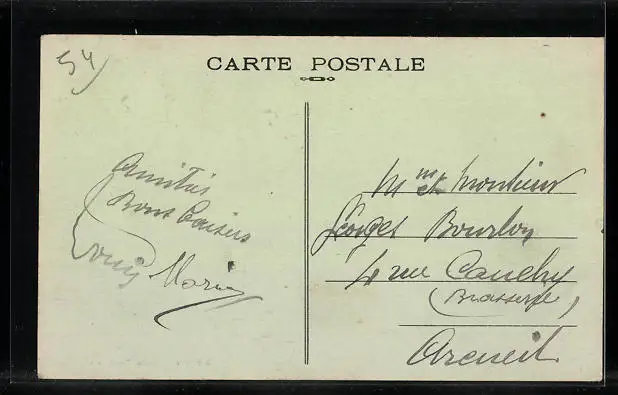 54
CARTE POSTALE
Amitiés
Bons Baisers
Louis Marie
Mme et Monsieur
Georges Bourbon
4 rue Cauchy
(Brasserie)
Arcueil